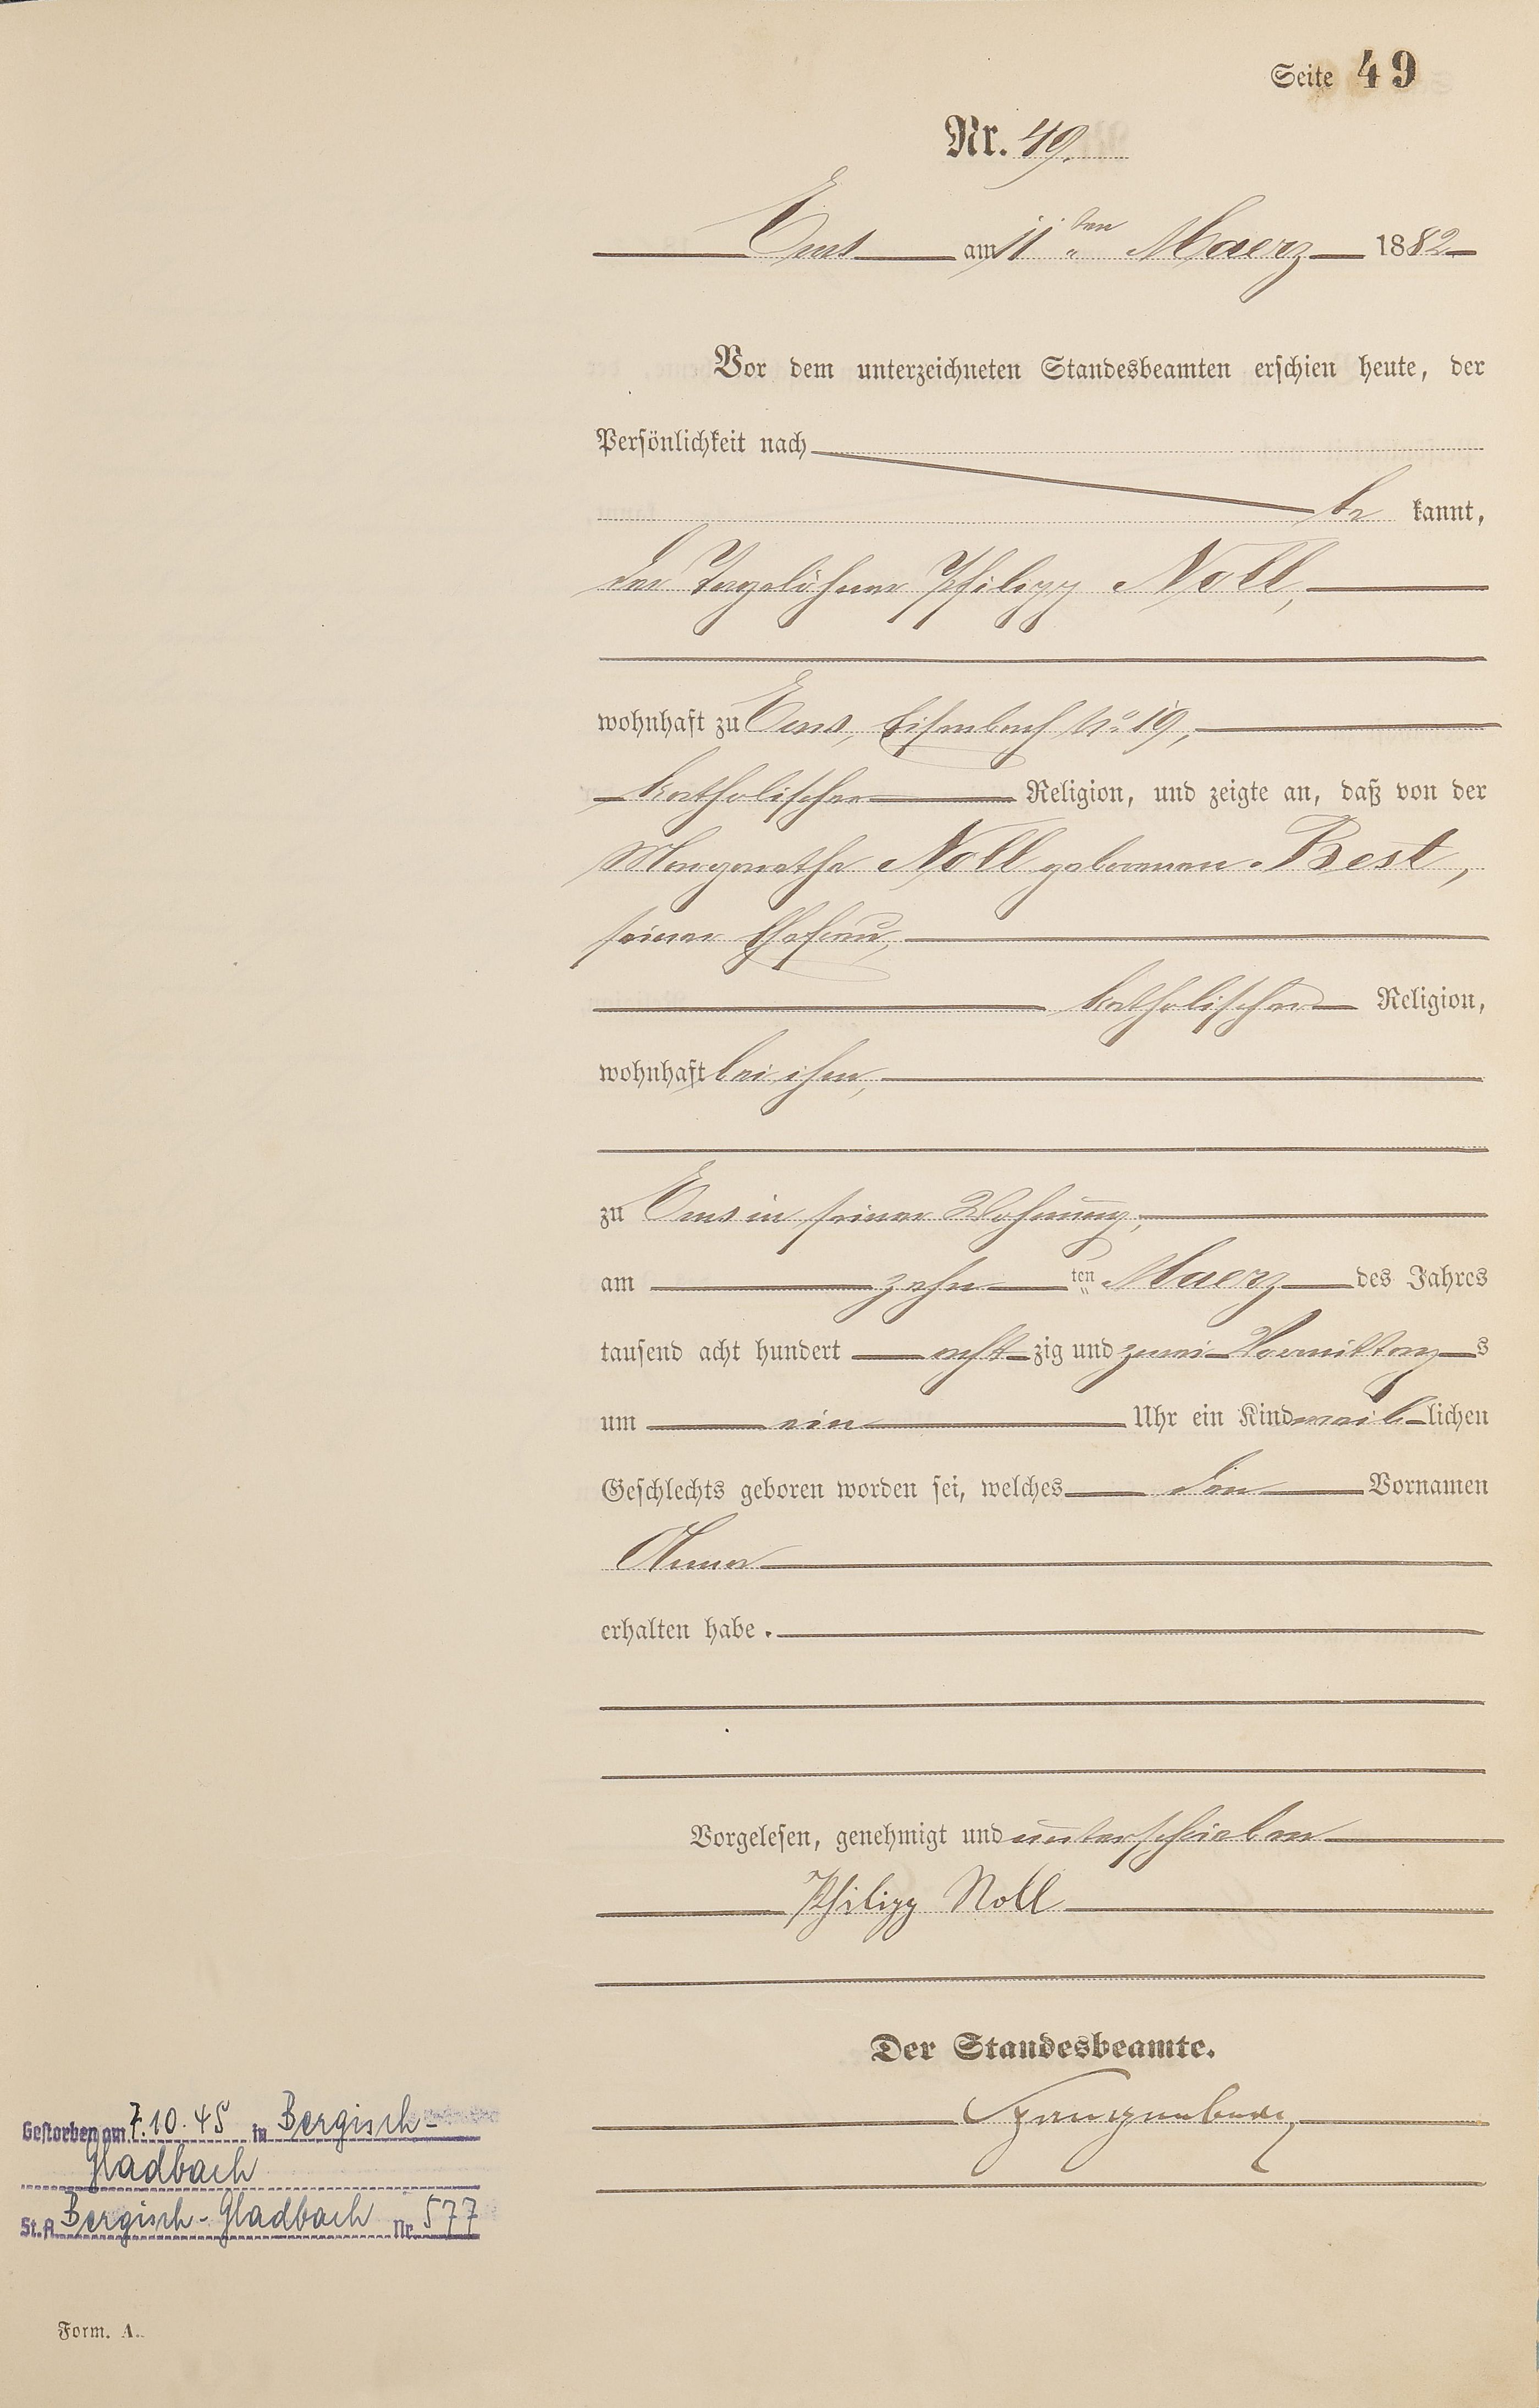 Seite 49
Nr. 49.
Ems am 11ten Maerz 1882
Vor dem unterzeichneten Standesbeamten erschien heute, der
Persönlichkeit nach
be kannt,
der Tagelöhner Philipp Noll,
wohnhaft zu Ems, Eisenbach No 19,
katholischer Religion, und zeigte an, daß von der
Margarethe Noll geborenen Best,
seiner Ehefrau,
katholischer Religion,
wohnhaft bei ihm,
zu Ems in seiner Wohnung,
am zehn ten Maerz des Jahres
tausend acht hundert acht zig und zwei Vormittag s
um ein Uhr ein Kind weib lichen
Geschlechts geboren worden sei, welches den Vornamen
Anna
erhalten habe.
Vorgelesen, genehmigt und unterschrieben
Philipp Noll
Der Standesbeamte.
Gestorben am 7.10.45 in Bergisch-
Gladbach
St.A. Bergisch-Gladbach Nr. 577
Form. A.